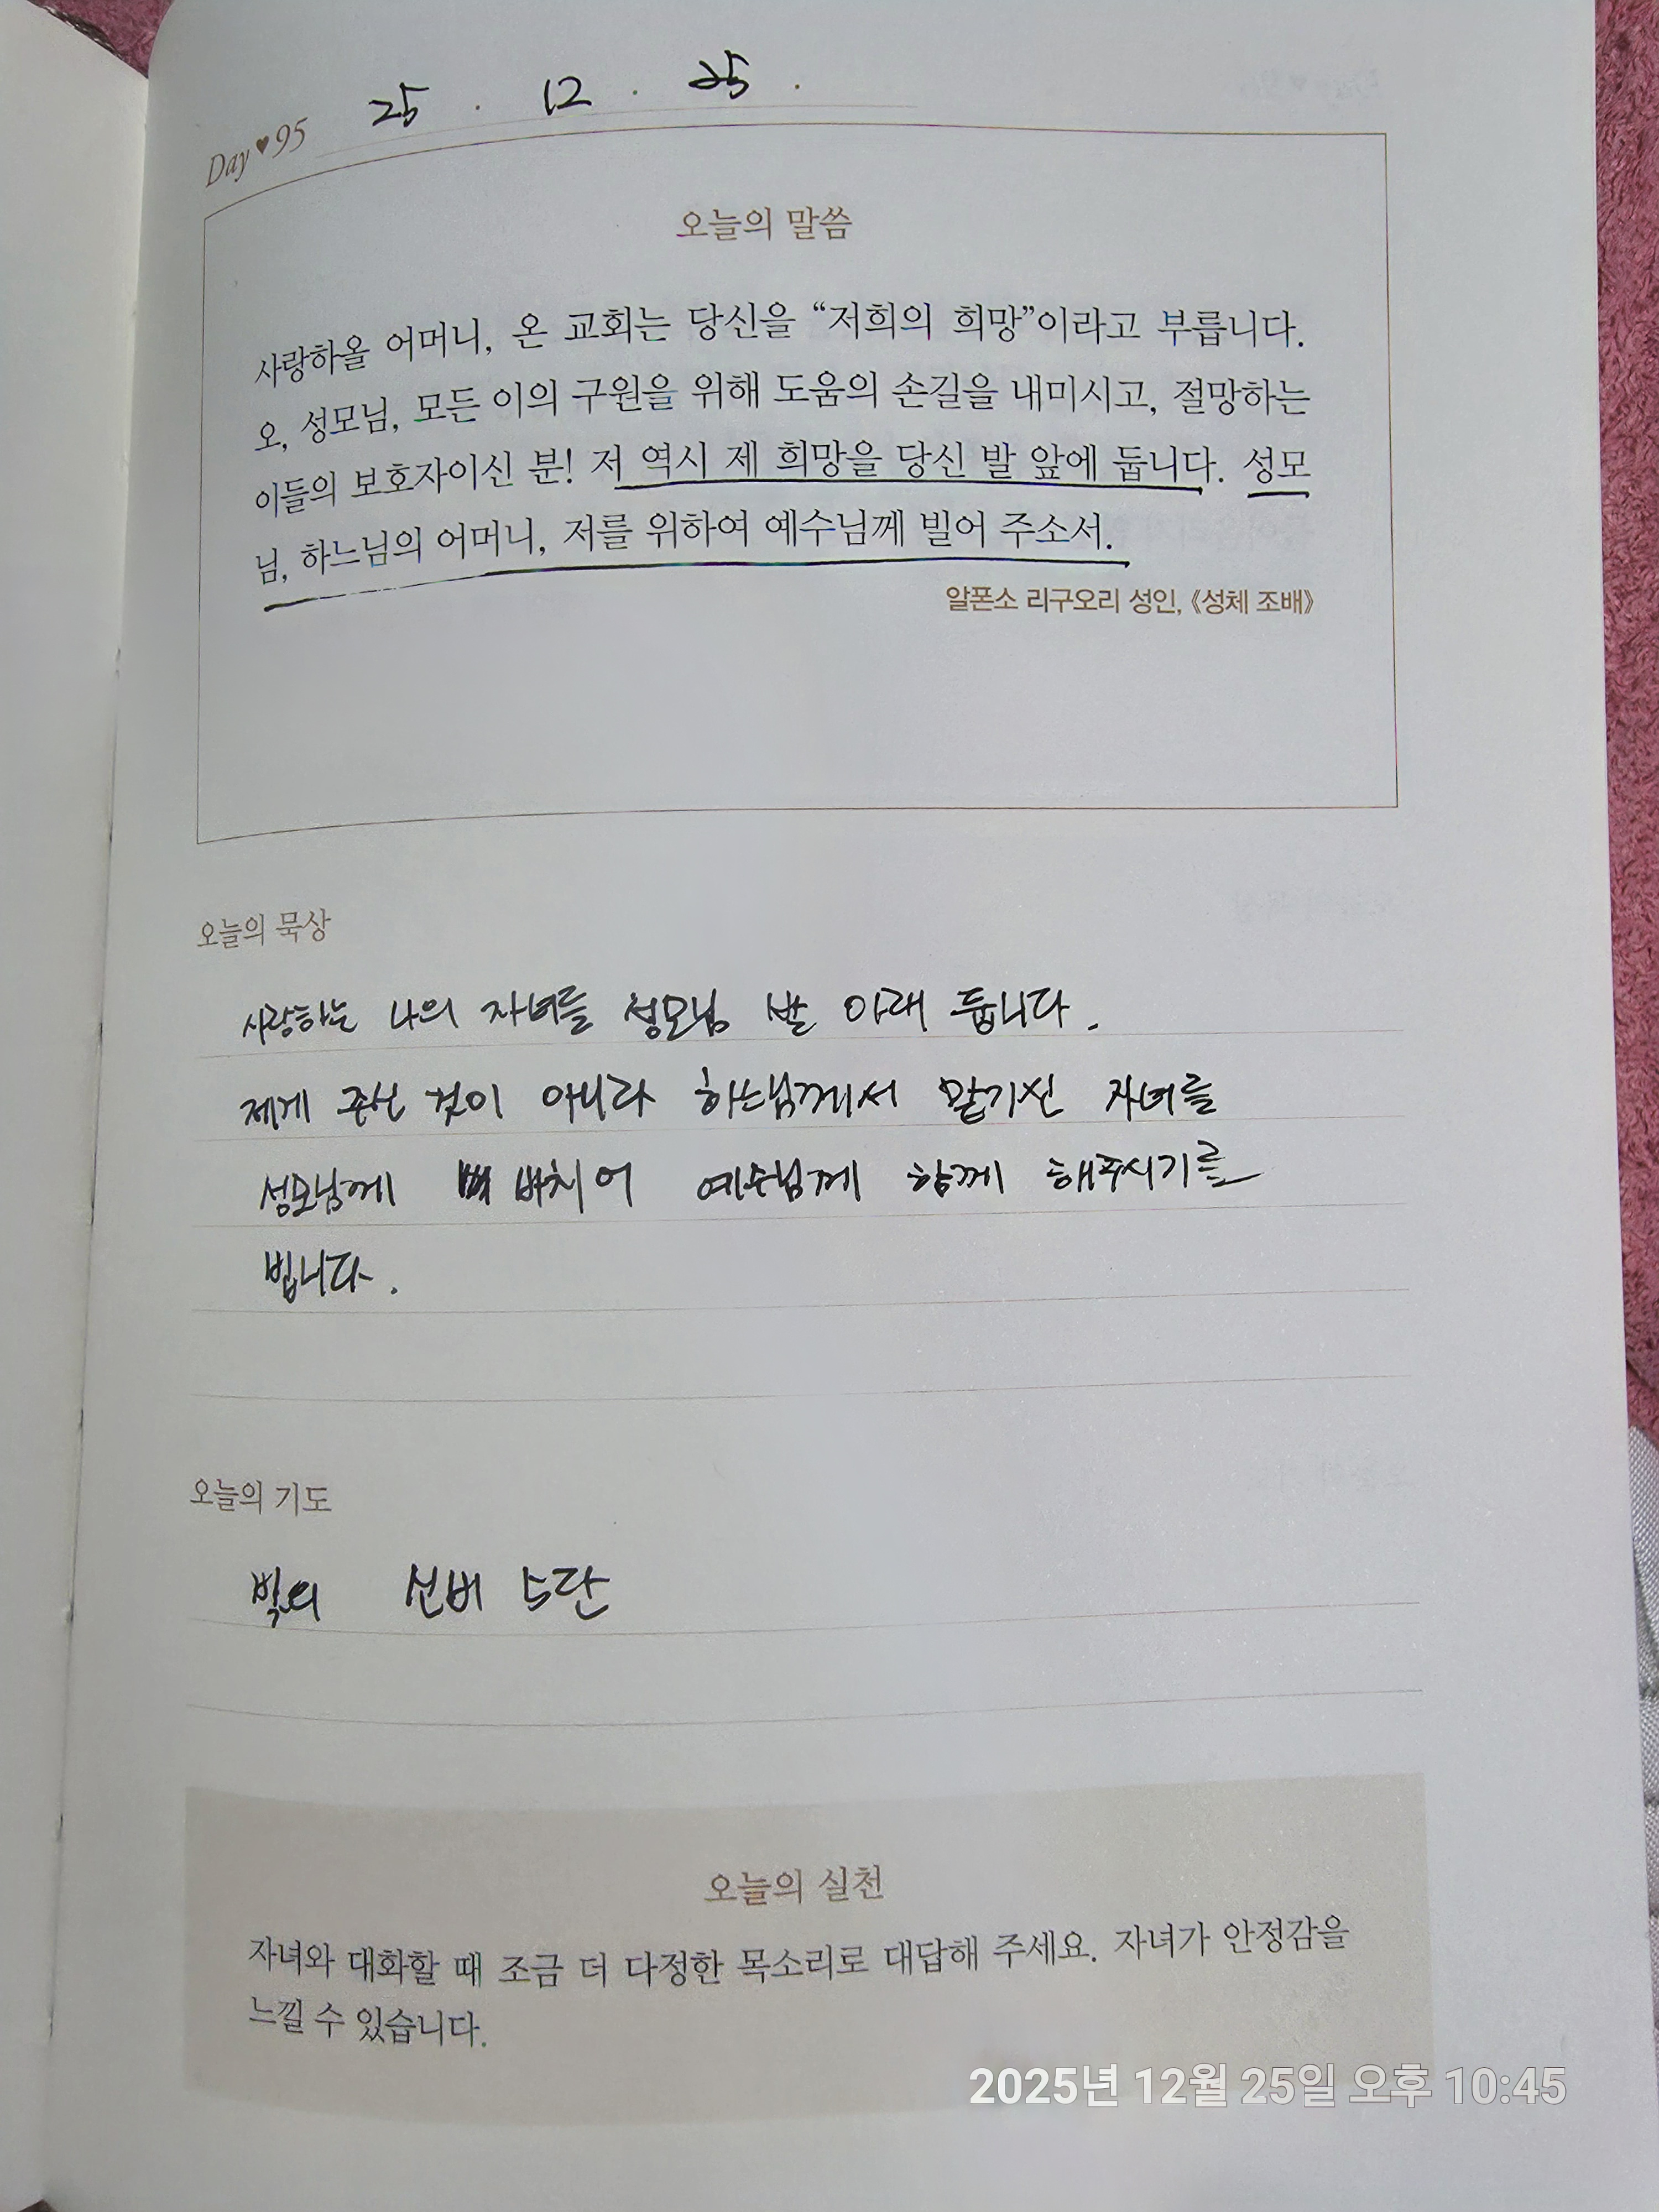 Day♥95 25 . 12 . 25 .
오늘의 말씀
사랑하올 어머니, 온 교회는 당신을 “저희의 희망”이라고 부릅니다.
오, 성모님, 모든 이의 구원을 위해 도움의 손길을 내미시고, 절망하는
이들의 보호자이신 분! 저 역시 제 희망을 당신 발 앞에 둡니다. 성모
님, 하느님의 어머니, 저를 위하여 예수님께 빌어 주소서.
알폰소 리구오리 성인, 《성체 조배》
오늘의 묵상
사랑하는 나의 자녀를 성모님 발 아래 둡니다.
제게 준신 것이 아니라 하느님께서 맡기신 자녀를
성모님께 바치어 예수님께 함께 해주시기를
빕니다.
오늘의 기도
빛의 신비 5단
오늘의 실천
자녀와 대화할 때 조금 더 다정한 목소리로 대답해 주세요. 자녀가 안정감을
느낄 수 있습니다.
2025년 12월 25일 오후 10:45